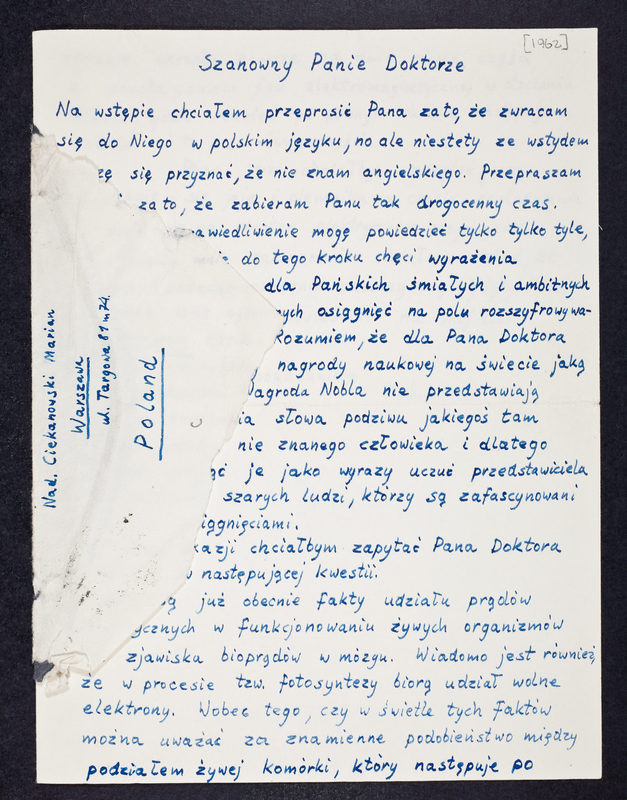 [1962]
Szanowny Panie Doktorze
Na wstępie chciałem przeprosić Pana za to, że zwracam
się do Niego w polskim języku, no ale niestety ze wstydem
zę się przyznać, że nie znam angielskiego. Przepraszam
za to, że zabieram Panu tak drogocenny czas.
awiedliwienie mogę powiedzieć tylko tylko tyle,
do tego kroku chęci wyrażenia
dla Pańskich śmiałych i ambitnych
nych osiągnięć na polu rozszyfrowywa-
Rozumiem, że dla Pana Doktora
nagrody naukowej na świecie jaką
Nagroda Nobla nie przedstawiają
ia słowa podziwu jakiegoś tam
nie znanego człowieka i dlatego
ąć je jako wyrazy uczuć przedstawiciela
szarych ludzi, którzy są zafascynowani
iągnięciami.
kazji chciałbym zapytać Pana Doktora
w następującej kwestii.
są już obecnie fakty udziału prądów
ycznych w funkcjonowaniu żywych organizmów
zjawiska bioprądów w mózgu. Wiadomo jest również,
że w procesie tzw. fotosyntezy biorą udział wolne
elektrony. Wobec tego, czy w świetle tych faktów
można uważać za znamienne podobieństwo między
podziałem żywej komórki, który następuje po
Nad. Ciekanowski Marian
Warszawa
ul. Targowa 81 m 74.
Poland